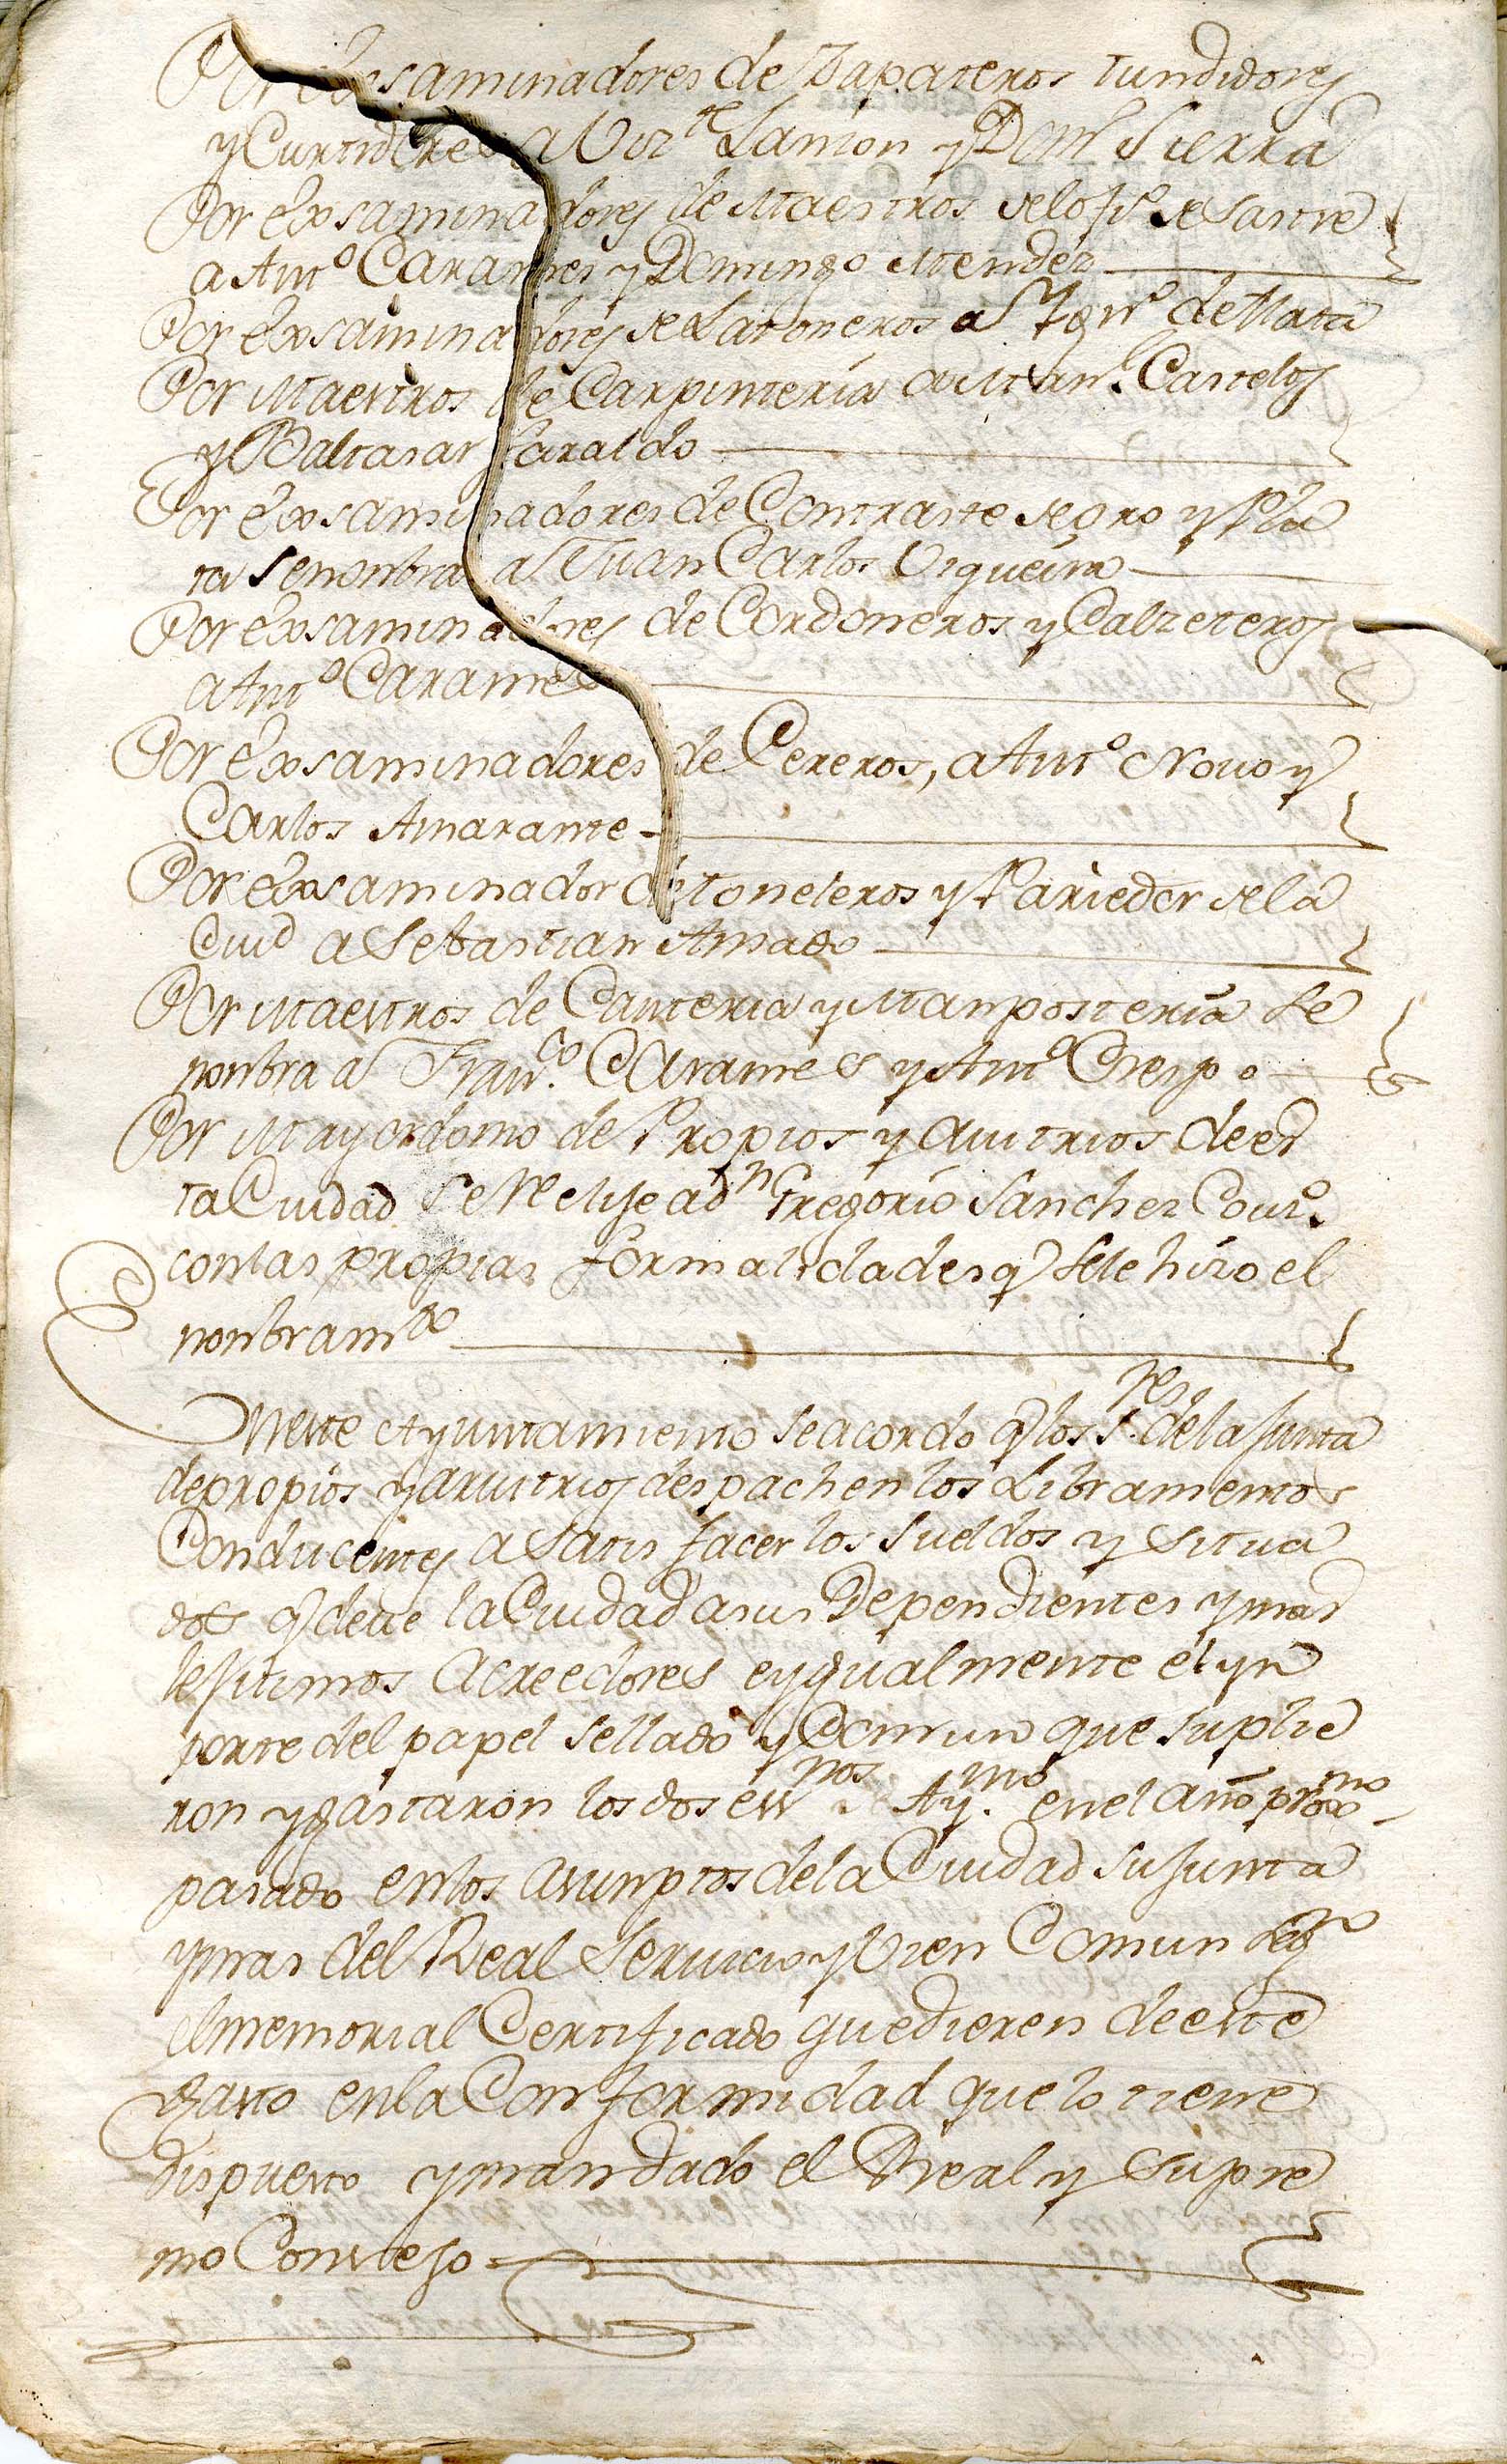 Por Exsaminadores de Zapateros tundidores
y Curtidores a Viz.te Lanson y Dom.o Sierra
Por Exsaminadores de Maestros de lofiº de Sastre
a Antº Carames y Domingo Mendez
Por Exsaminadores de Latoneros a de Mata
Por Maestros de Carpinteria a Man.l Castelos
y Baltasar Caraldo
Por Exsaminadores de Contraste de oro y Pla
ta se nonbra a Juan Carlos Vigueira
Por exsaminadores de Cordoneros y Calzeteros
a Antº Carames
Por Exsaminadores de Cereros, a Antº Novo y
Carlos Amarante
Por exsaminador de toneleros y Pariedor de la
Ciud a Sebastian Amado
Por Maestros de Canteria y Manposteria se
nonbra a Fran.co Carames y Antº Crespo
Por Mayordomo de Propios y Auitrios de es
ta Ciudad se Relije a Dn Gregorio Sanchez Couº.
con las propias formalidades q se le hizo el
nonbramto
Eneste Ayuntamiento se acordo q los Sres de la Junta
de propios y aruitrios despachen los Libramentos
Conducentes a Satisfacer los sueldos y situa
dos q deue la Ciudad a sus Dependientes y mas
lejitimos acreedores e ygualmente el yn
porte del papel sellado y Comun que suplie
ron y gastaron los dos essnos Aymto en el año proxmo
pasado en los asunptos de la Ciudad su Junta
y mas del Real Seruicio y Vien Comun segº
el memorial Certificado que dieren de este
gasto en la Conformidad que lo tiene
dispuesto y mandado el Real y Supre
mo Consejo =